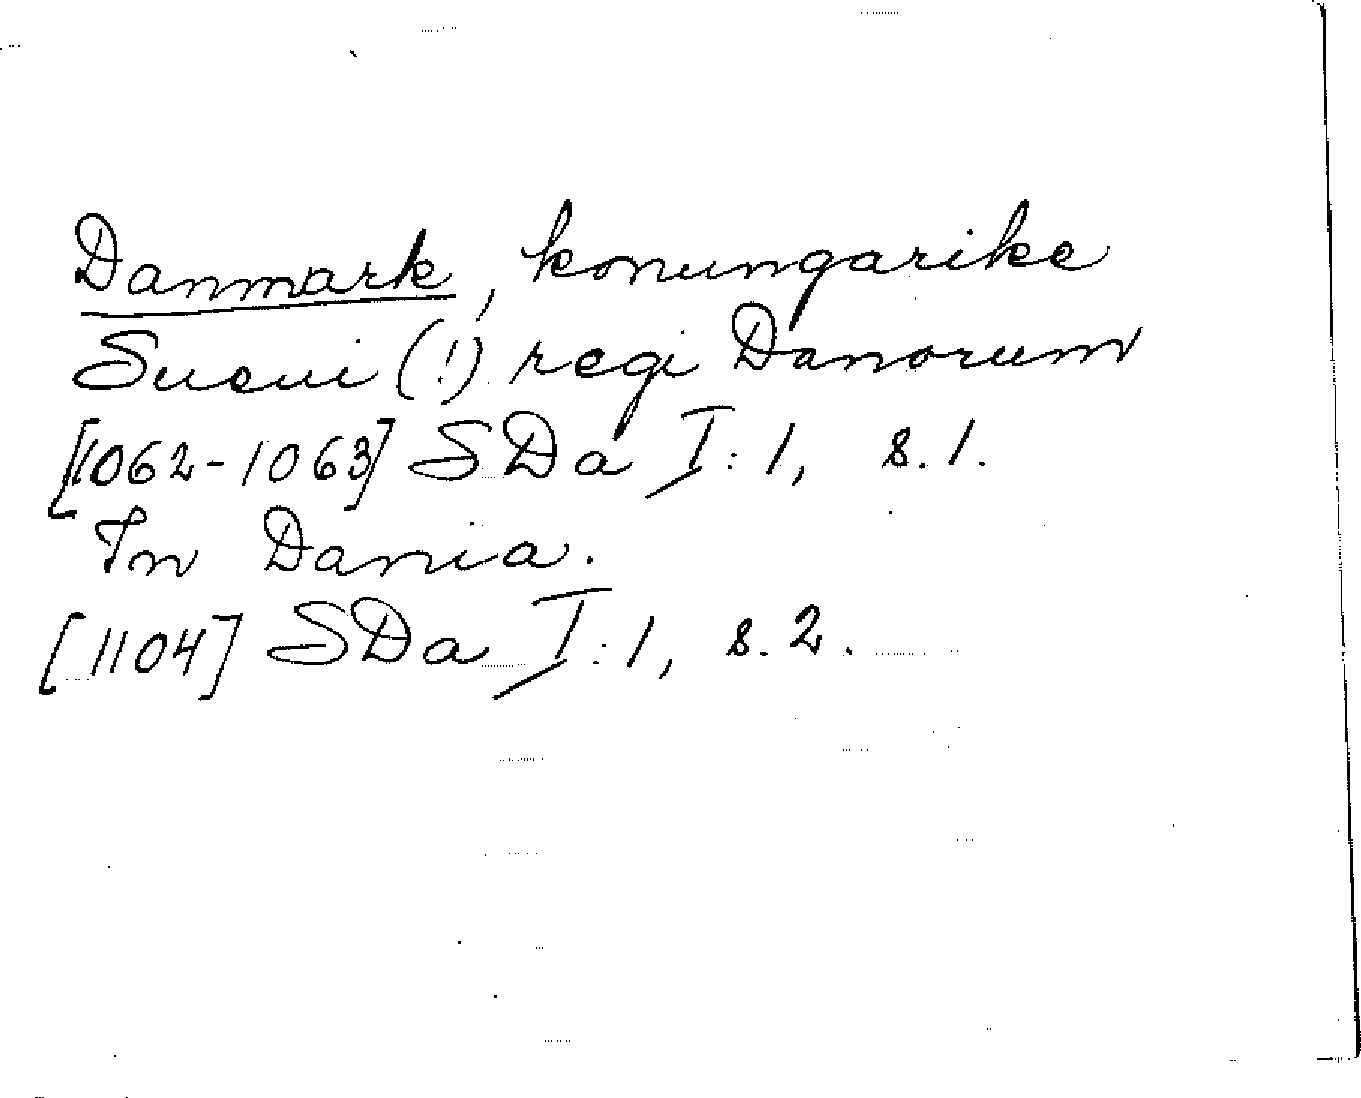 Danmark, konungarike
Sueui (!) regi Danorum
[1062-1063] SDa I:1, s.1.
In Dania.
[1104] SDa I:1, s.2.